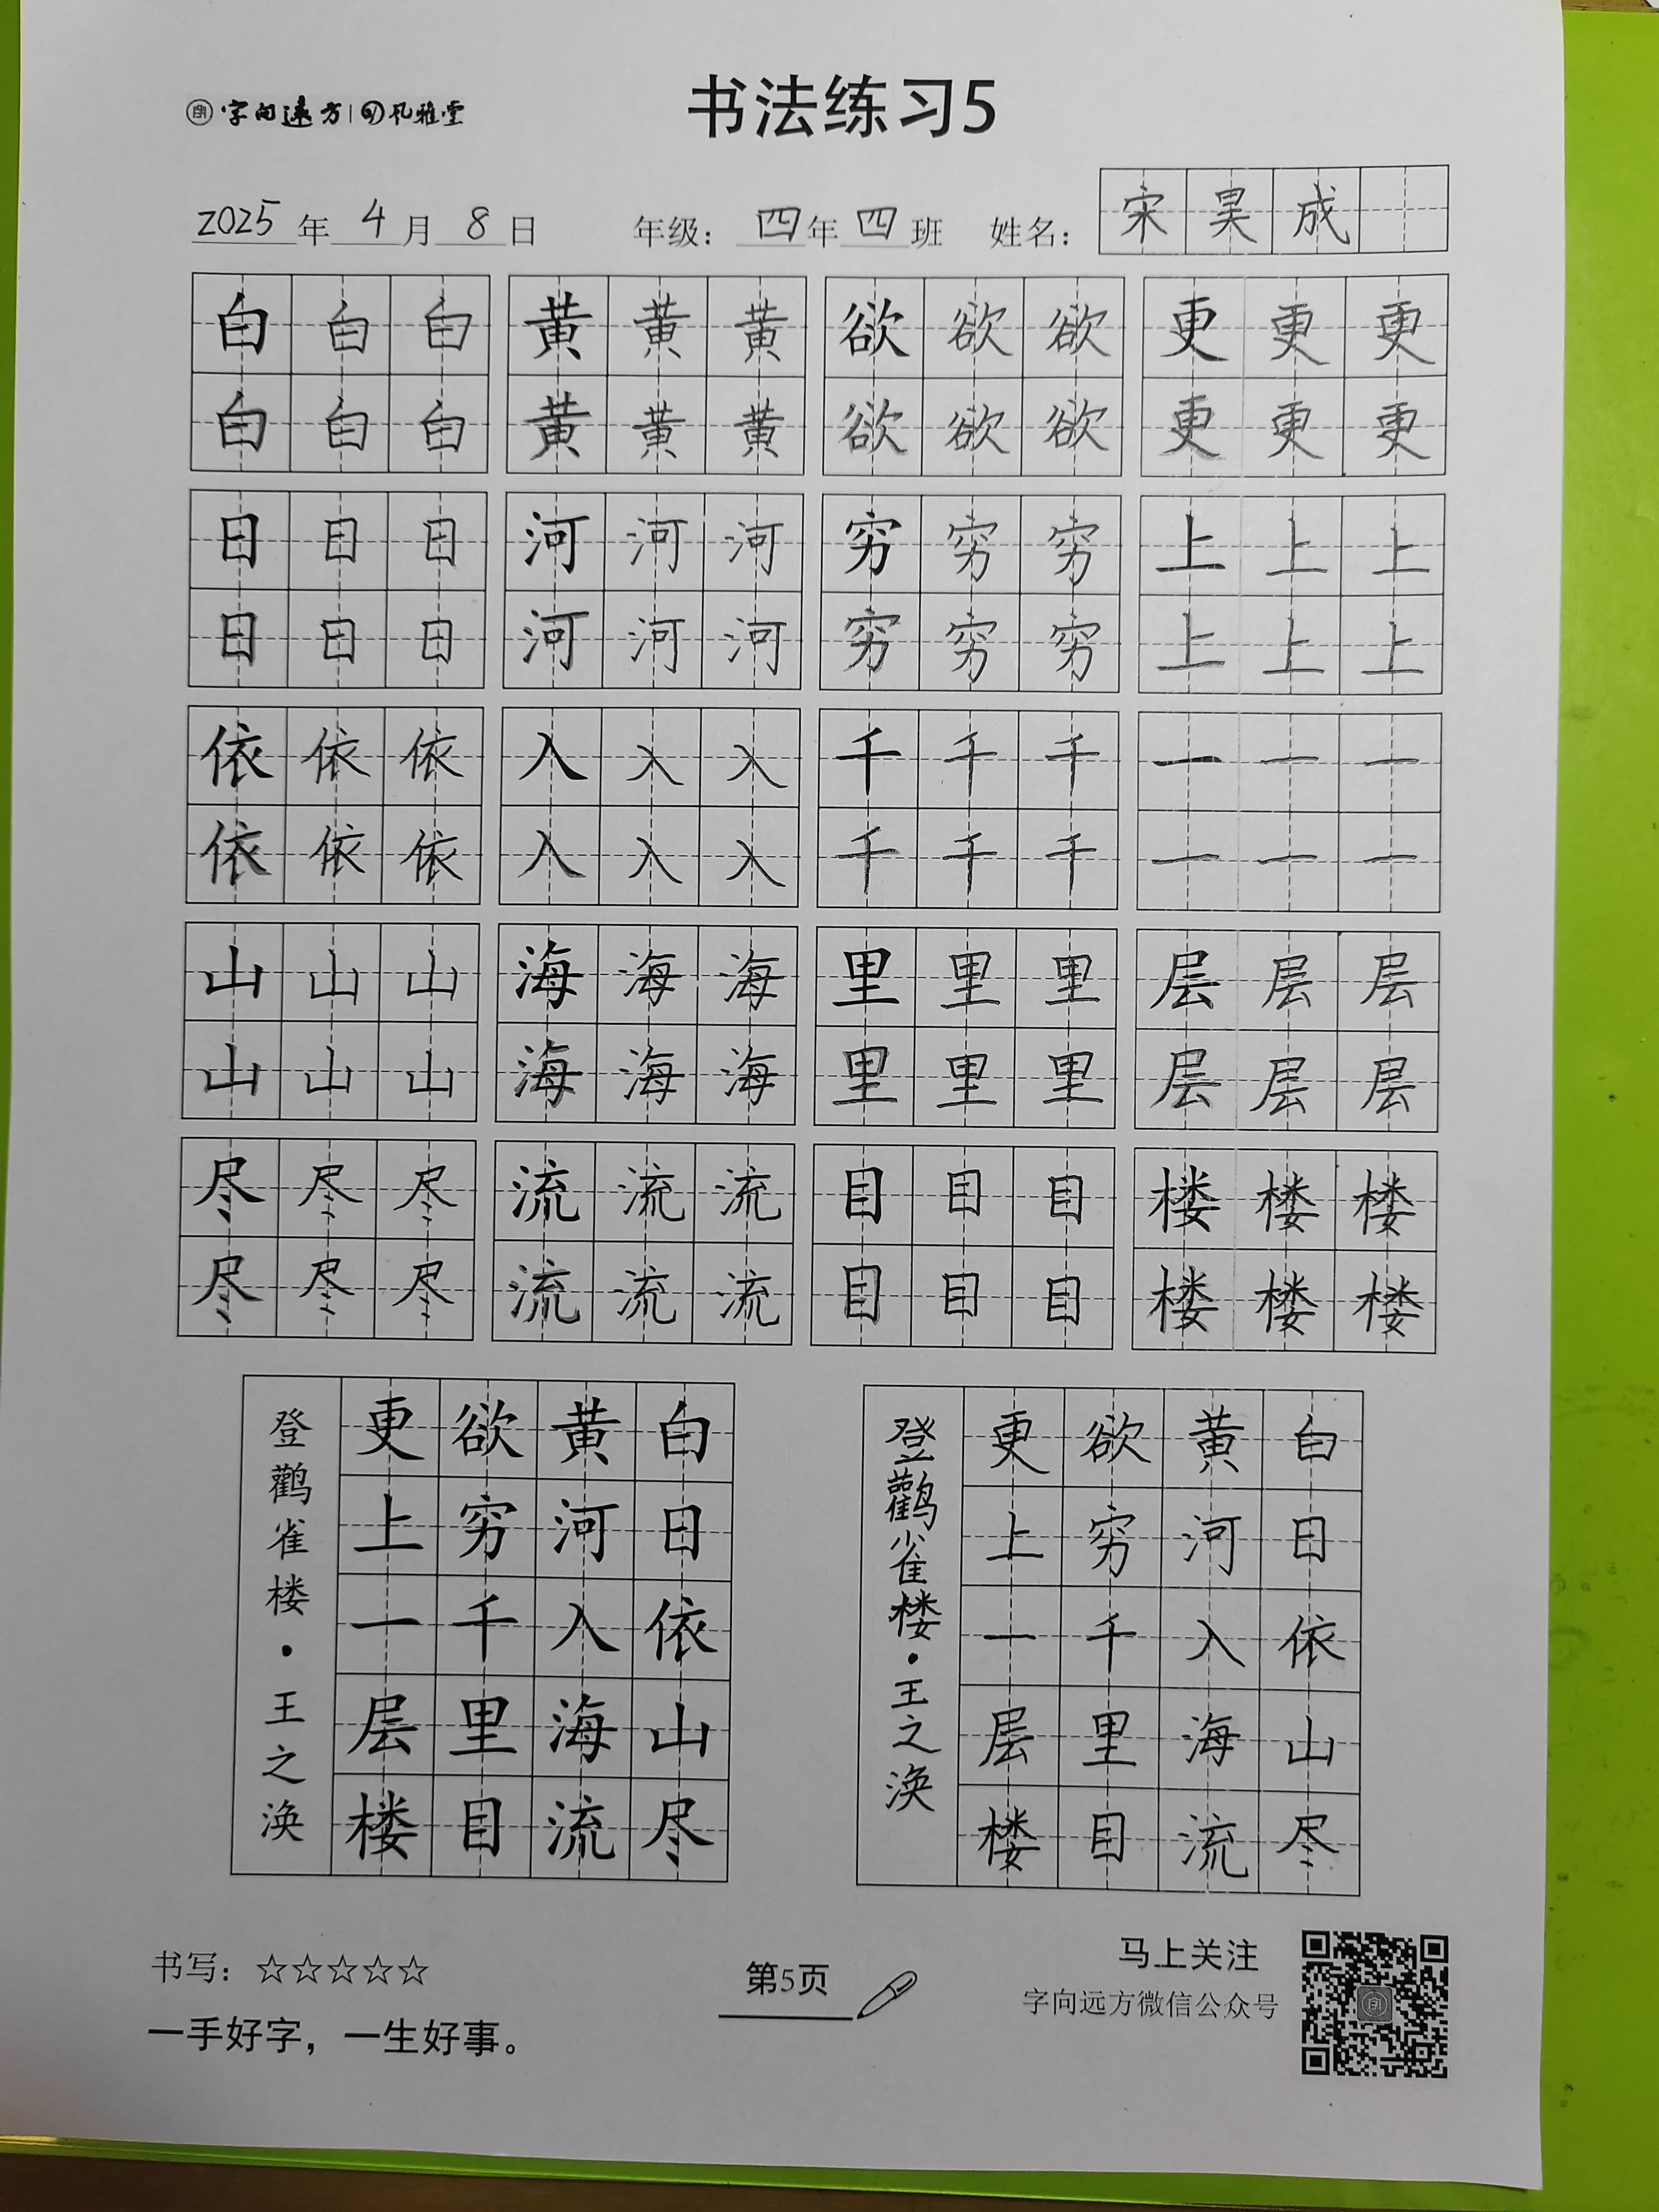 字向远方 风雅堂
书法练习5
2025年 4月 8日 年级：四年四班 姓名：宋昊成
白白白 黄黄黄 欲欲欲 更更更
白白白 黄黄黄 欲欲欲 更更更
日日日 河河河 穷穷穷 上上上
日日日 河河河 穷穷穷 上上上
依依依 入入入 千千千 一一一
依依依 入入入 千千千 一一一
山山山 海海海 里里里 层层层
山山山 海海海 里里里 层层层
尽尽尽 流流流 目目目 楼楼楼
尽尽尽 流流流 目目目 楼楼楼
白日依山尽
黄河入海流
欲穷千里目
更上一层楼
登鹳雀楼·王之涣
白日依山尽
黄河入海流
欲穷千里目
更上一层楼
登鹳雀楼·王之涣
书写：☆☆☆☆☆
一手好字，一生好事。
第5页
马上关注
字向远方微信公众号